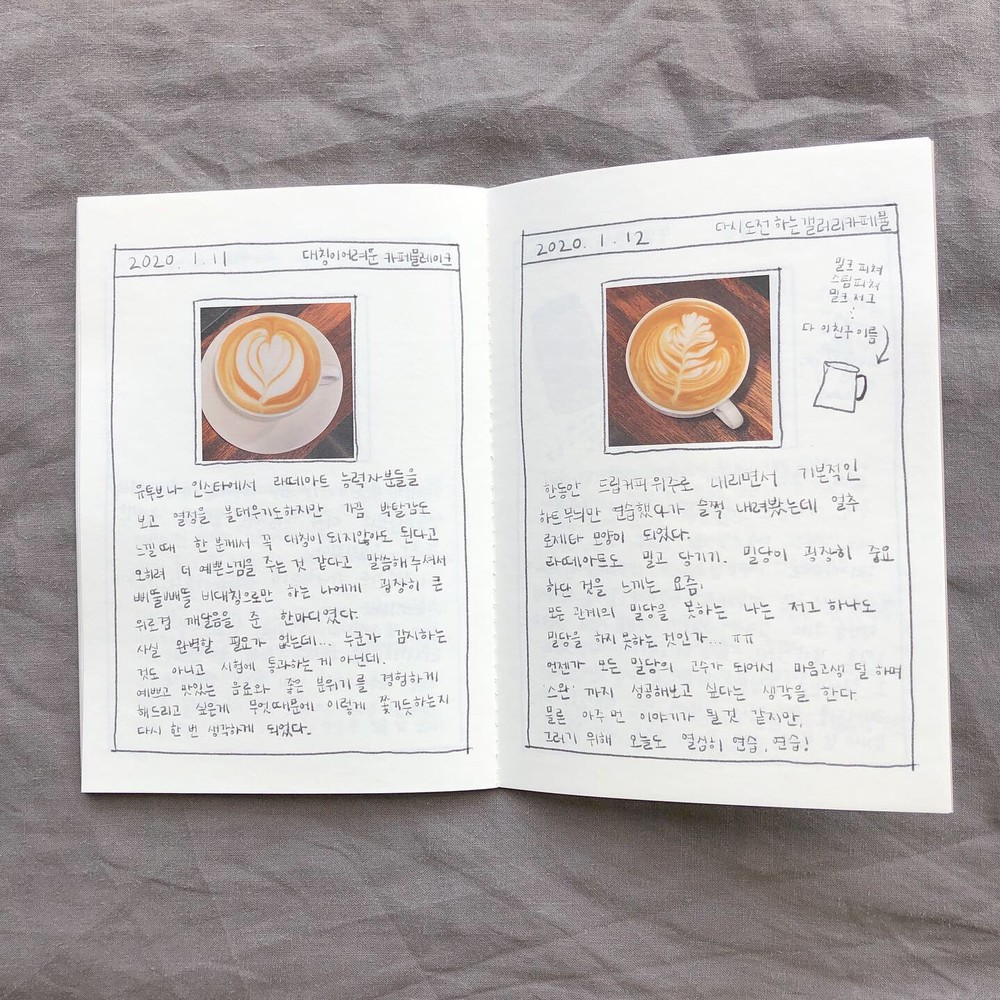 2020. 1. 11
대칭이어려운 카페뮬레이크
유투브나 인스타에서 라떼아트 능력자분들을
보고 열정을 불태우기도하지만 가끔 박탈감도
느낄때 한 분께서 꼭 대칭이 되지않아도 된다고
오히려 더 예쁜느낌을 주는 것 같다고 말씀해주셔서
삐뚤빼뚤 비대칭으로만 하는 나에게 굉장히 큰
위로겸 깨달음을 준 한마디였다.
사실 완벽할 필요가 없는데... 누군가 감시하는
것도 아니고 시험에 통과하는 게 아닌데.
예쁘고 맛있는 음료와 좋은 분위기를 경험하게
해드리고 싶은게 무엇때문에 이렇게 쫓기듯하는지
다시 한 번 생각하게 되었다.
2020. 1. 12
다시도전하는갤러리카페물
밀크피쳐
스팀피쳐
밀크저그
⋮
다 이친구이름
한동안 드립커피 위주로 내리면서 기본적인
하트무늬만 연습했다가 슬쩍 내려봤는데 얼추
로제타 모양이 되었다.
라떼아트도 밀고 당기기. 밀당이 굉장히 중요
하단 것을 느끼는 요즘!
모든 관계의 밀당을 못하는 나는 저그 하나도
밀당을 하지 못하는 것인가... ㅠㅠ
언젠가 모든 밀당의 고수가 되어서 마음고생 덜 하며
'스완' 까지 성공해보고 싶다는 생각을 한다
물론 아주 먼 이야기가 될것 같지만,
그러기 위해 오늘도 열심히 연습, 연습!